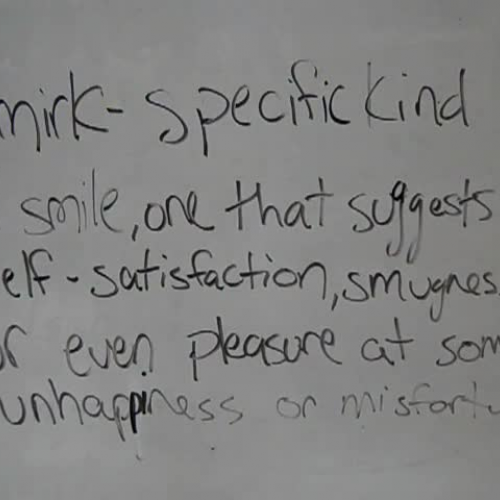 mirk- specific kind
smile, one that suggests
elf-satisfaction, smugnes
or even pleasure at som
unhappiness or misfortu